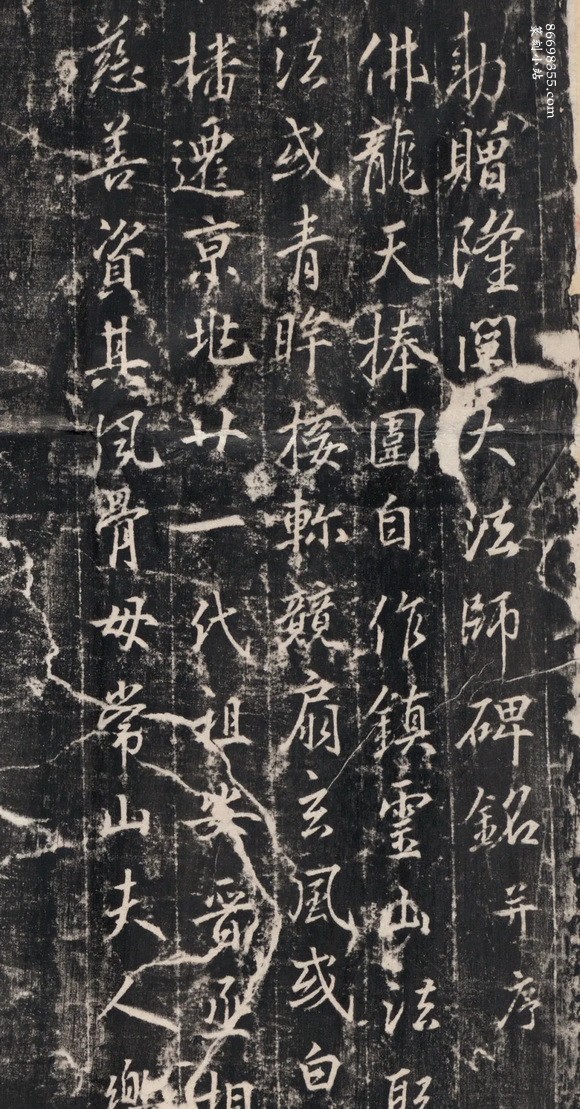 86698355.com
篆刻小站
勅贈隆闡大法師碑銘并序
佛龍天捧圍自作鎮靈山法
法或青眸接軫競扇玄風或白
播遷京兆廿一代祖安晉丞相
慈善資其風骨母常山夫人樂